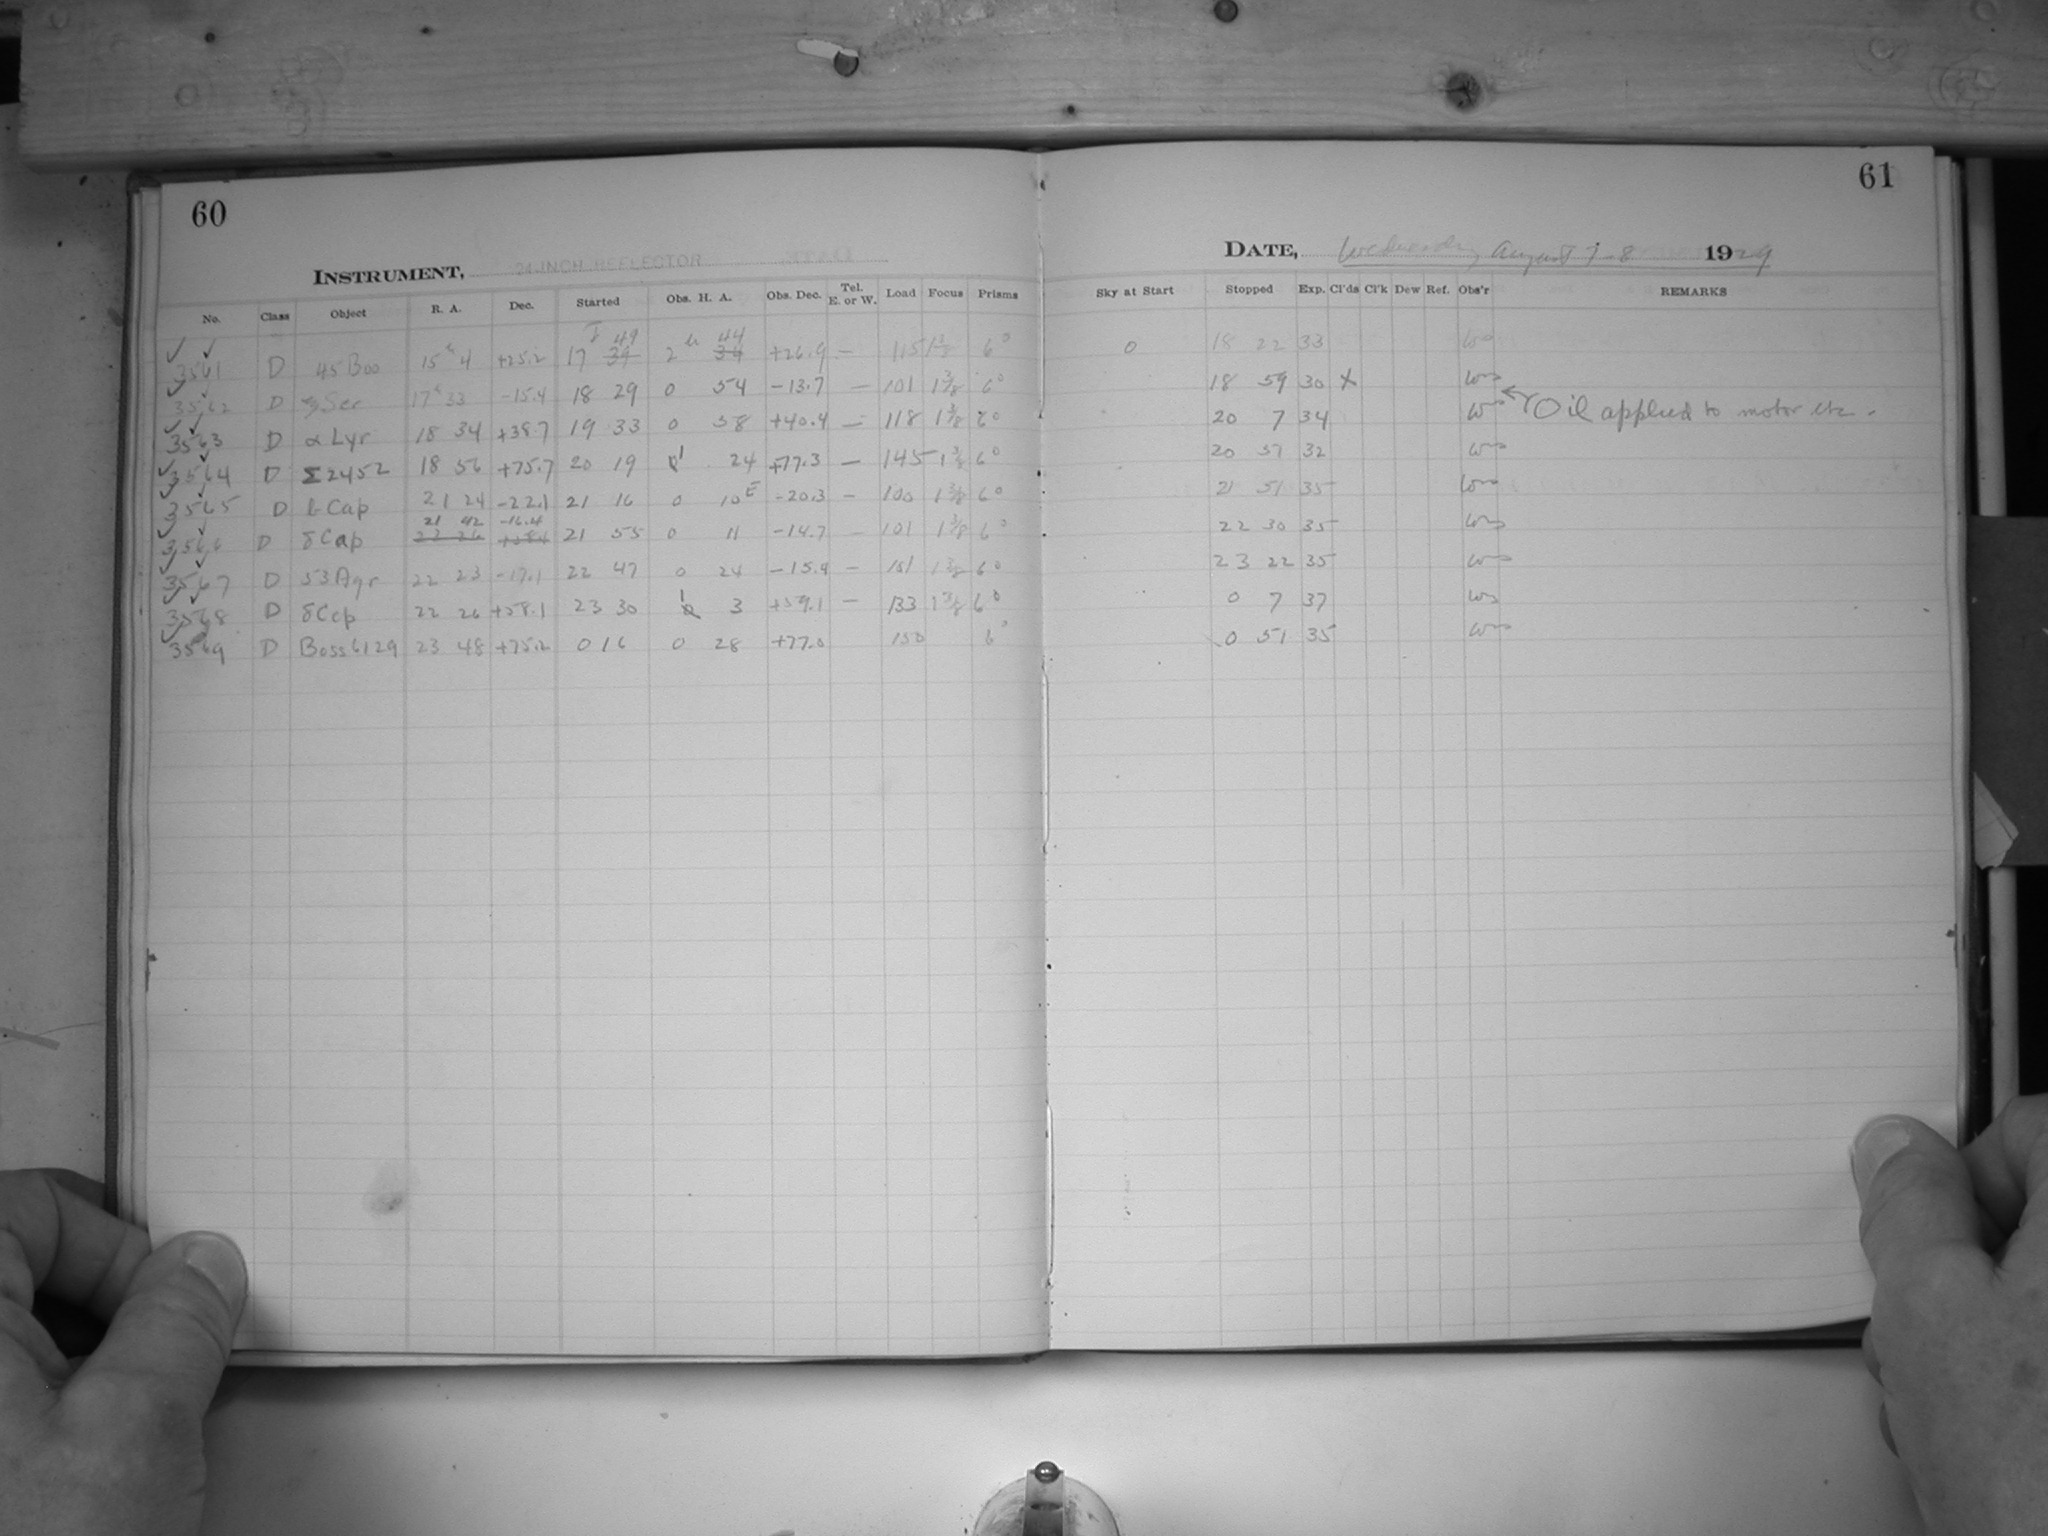 60
INSTRUMENT, 24-INCH REFLECTOR
No. Class Object R. A. Dec. Started Obs. H. A. Obs. Dec. Tel. E. or W. Load Focus Prisms
3561 D 45 Boo 15h 4 +25.2 17 39 49 2h 34 44 +26.9 — 115 1 3/8 6°
3562 D ξ Ser 17h 33 -15.4 18 29 0 54 -13.7 — 101 1 3/8 6°
3563 D α Lyr 18 34 +38.7 19 33 0 58 +40.4 — 118 1 3/8 6°
3564 D Σ2452 18 56 +75.7 20 19 1 24 +77.3 — 145 1 3/8 6°
3565 D b Cap 21 24 -22.1 21 16 0 10E -20.3 — 100 1 3/8 6°
21 42 -16.4
3566 D δ Cap 22 26 +58.1 21 55 0 11 -14.7 — 101 1 3/8 6°
3567 D 53 Aqr 22 23 -17.1 22 47 0 24 -15.4 — 101 1 3/8 6°
3568 D δ Cep 22 26 +58.1 23 30 1 3 +59.1 — 133 1 3/8 6°
3569 D Boss 6129 23 48 +75.2 0 16 0 28 +77.0 150 6°
61
DATE, Wednesday August 7-8 1929
Sky at Start Stopped Exp. Cl'ds Cl'k Dew Ref. Obs'r REMARKS
0 18 22 33
18 59 30 X
20 7 34 Oil applied to motor etc.
20 51 32
21 51 35
22 30 35
23 22 35
0 7 37
0 51 35